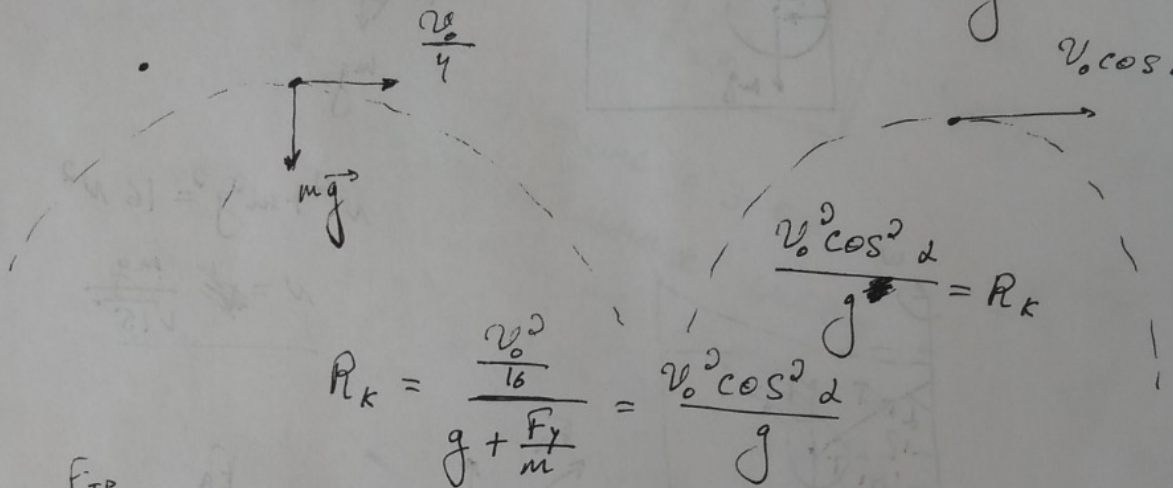 g
v₀/4
v₀ cos
mg⃗
v₀² cos² α / g = R_K
R_K = (v₀²/16) / (g + F_y/m) = v₀² cos² α / g
F_TP